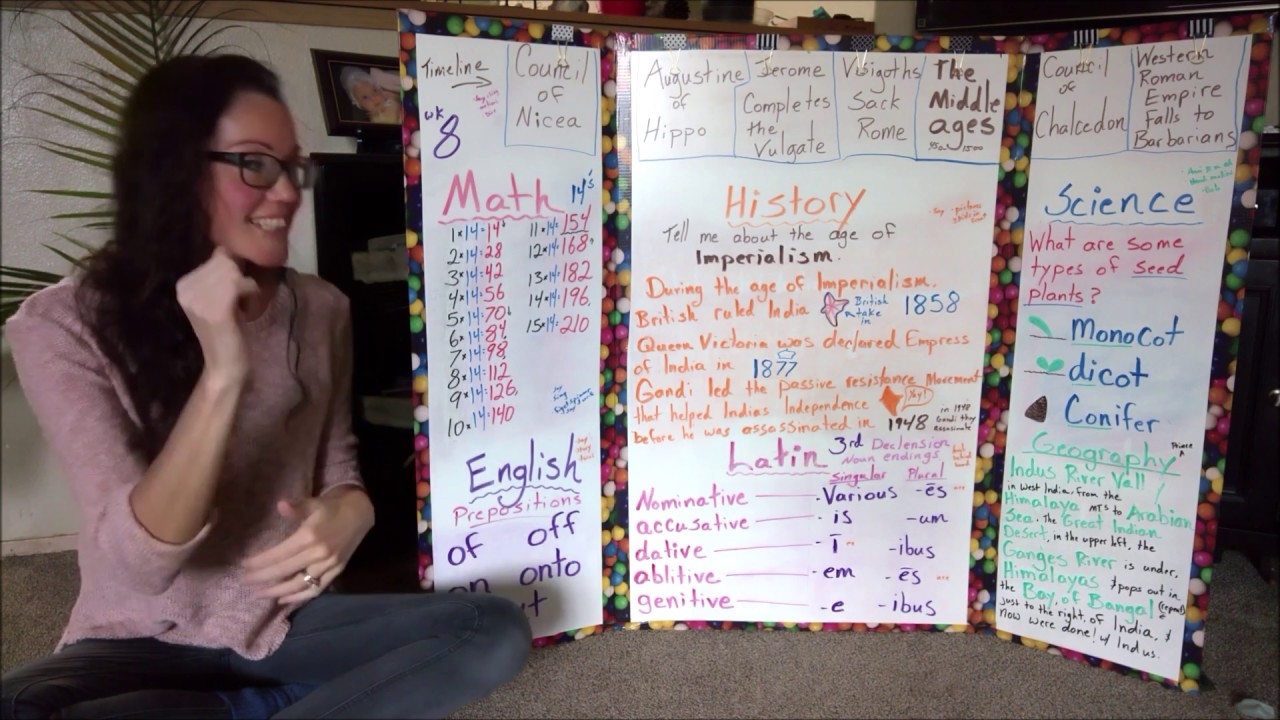 Timeline
wk
8
Council
of
Nicea
Augustine
of
Hippo
Jerome
Completes
the
Vulgate
Visigoths
Sack
Rome
The
Middle
ages
Council
of
Chalcedon
Western
Roman
Empire
Falls to
Barbarians
Math
14's
1×14=14
2×14=28
3×14=42
4×14=56
5×14=70
6×14=84
7×14=98
8×14=112
9×14=126
10×14=140
11×14=154
12×14=168
13×14=182
14×14=196
15×14=210
English
Prepositions
of off
on onto
History
Tell me about the age of
Imperialism.
During the age of Imperialism.
British ruled India British take in 1858
Queen Victoria was declared Empress
of India in 1877
Gondi led the passive resistance Movement
that helped Indias Independence
before he was assassinated in 1948
Latin 3rd Declension
Noun endings
Singular Plural
Nominative - Various - ēs
accusative - is - um
dative - ī - ibus
ablitive - em - ēs
genitive - e - ibus
Science
What are some
types of seed
plants?
monocot
dicot
Conifer
Geography
Indus River Vall
in West India, from the
Himalaya MTS to Arabian
Sea. The Great Indian
Desert, in the upper left, the
Ganges River is under,
Himalayas & pops out in
the Bay of Bangal (repeat)
just to the right, of India, &
now were done! w/ Indus.